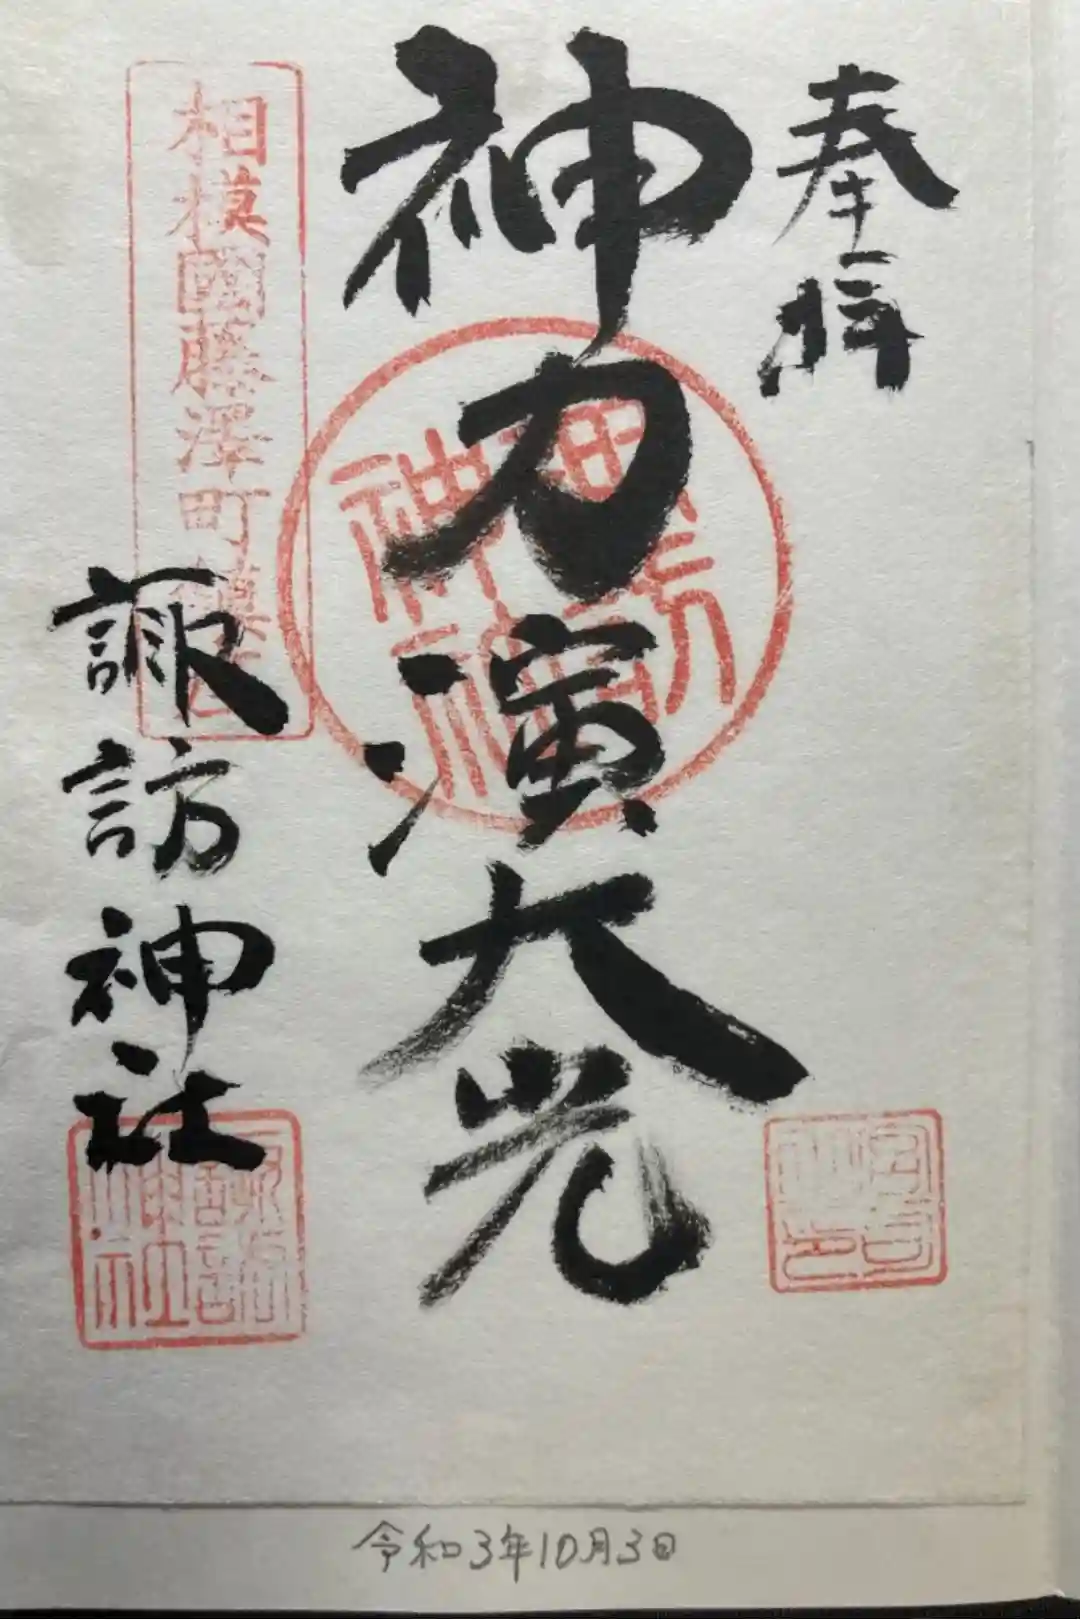 奉拝
神力演大光
相模國藤澤町鎮
諏訪神社
令和3年10月3日